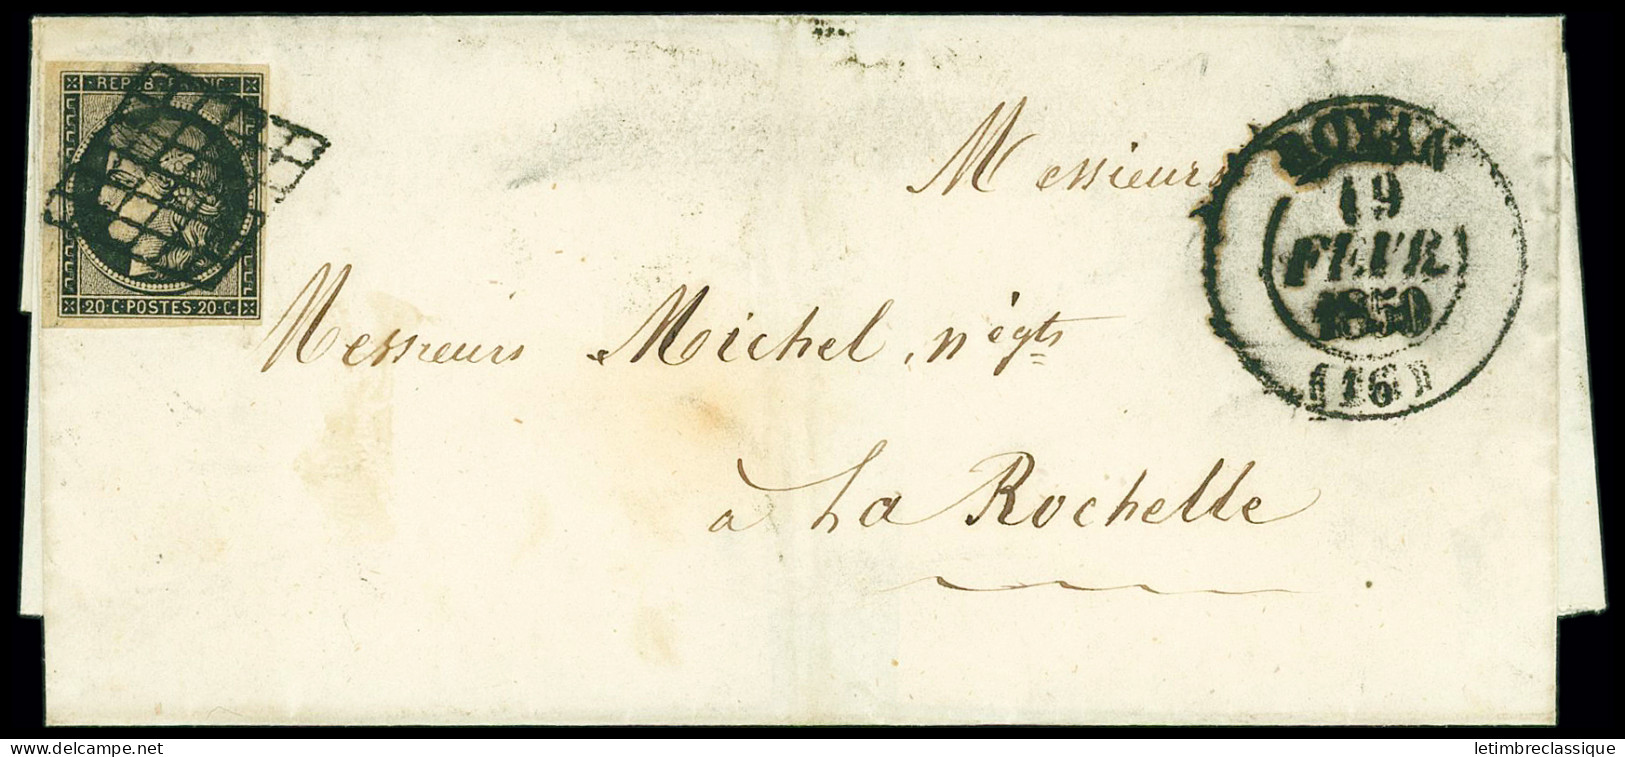 REPUB. FRANC.
20·C·POSTES·20·C·
Messieurs
Messieurs Michel, négts
à La Rochelle
ROYAN
19
FEVR
1850
(16)
© delcampe.net
letimbreclassique